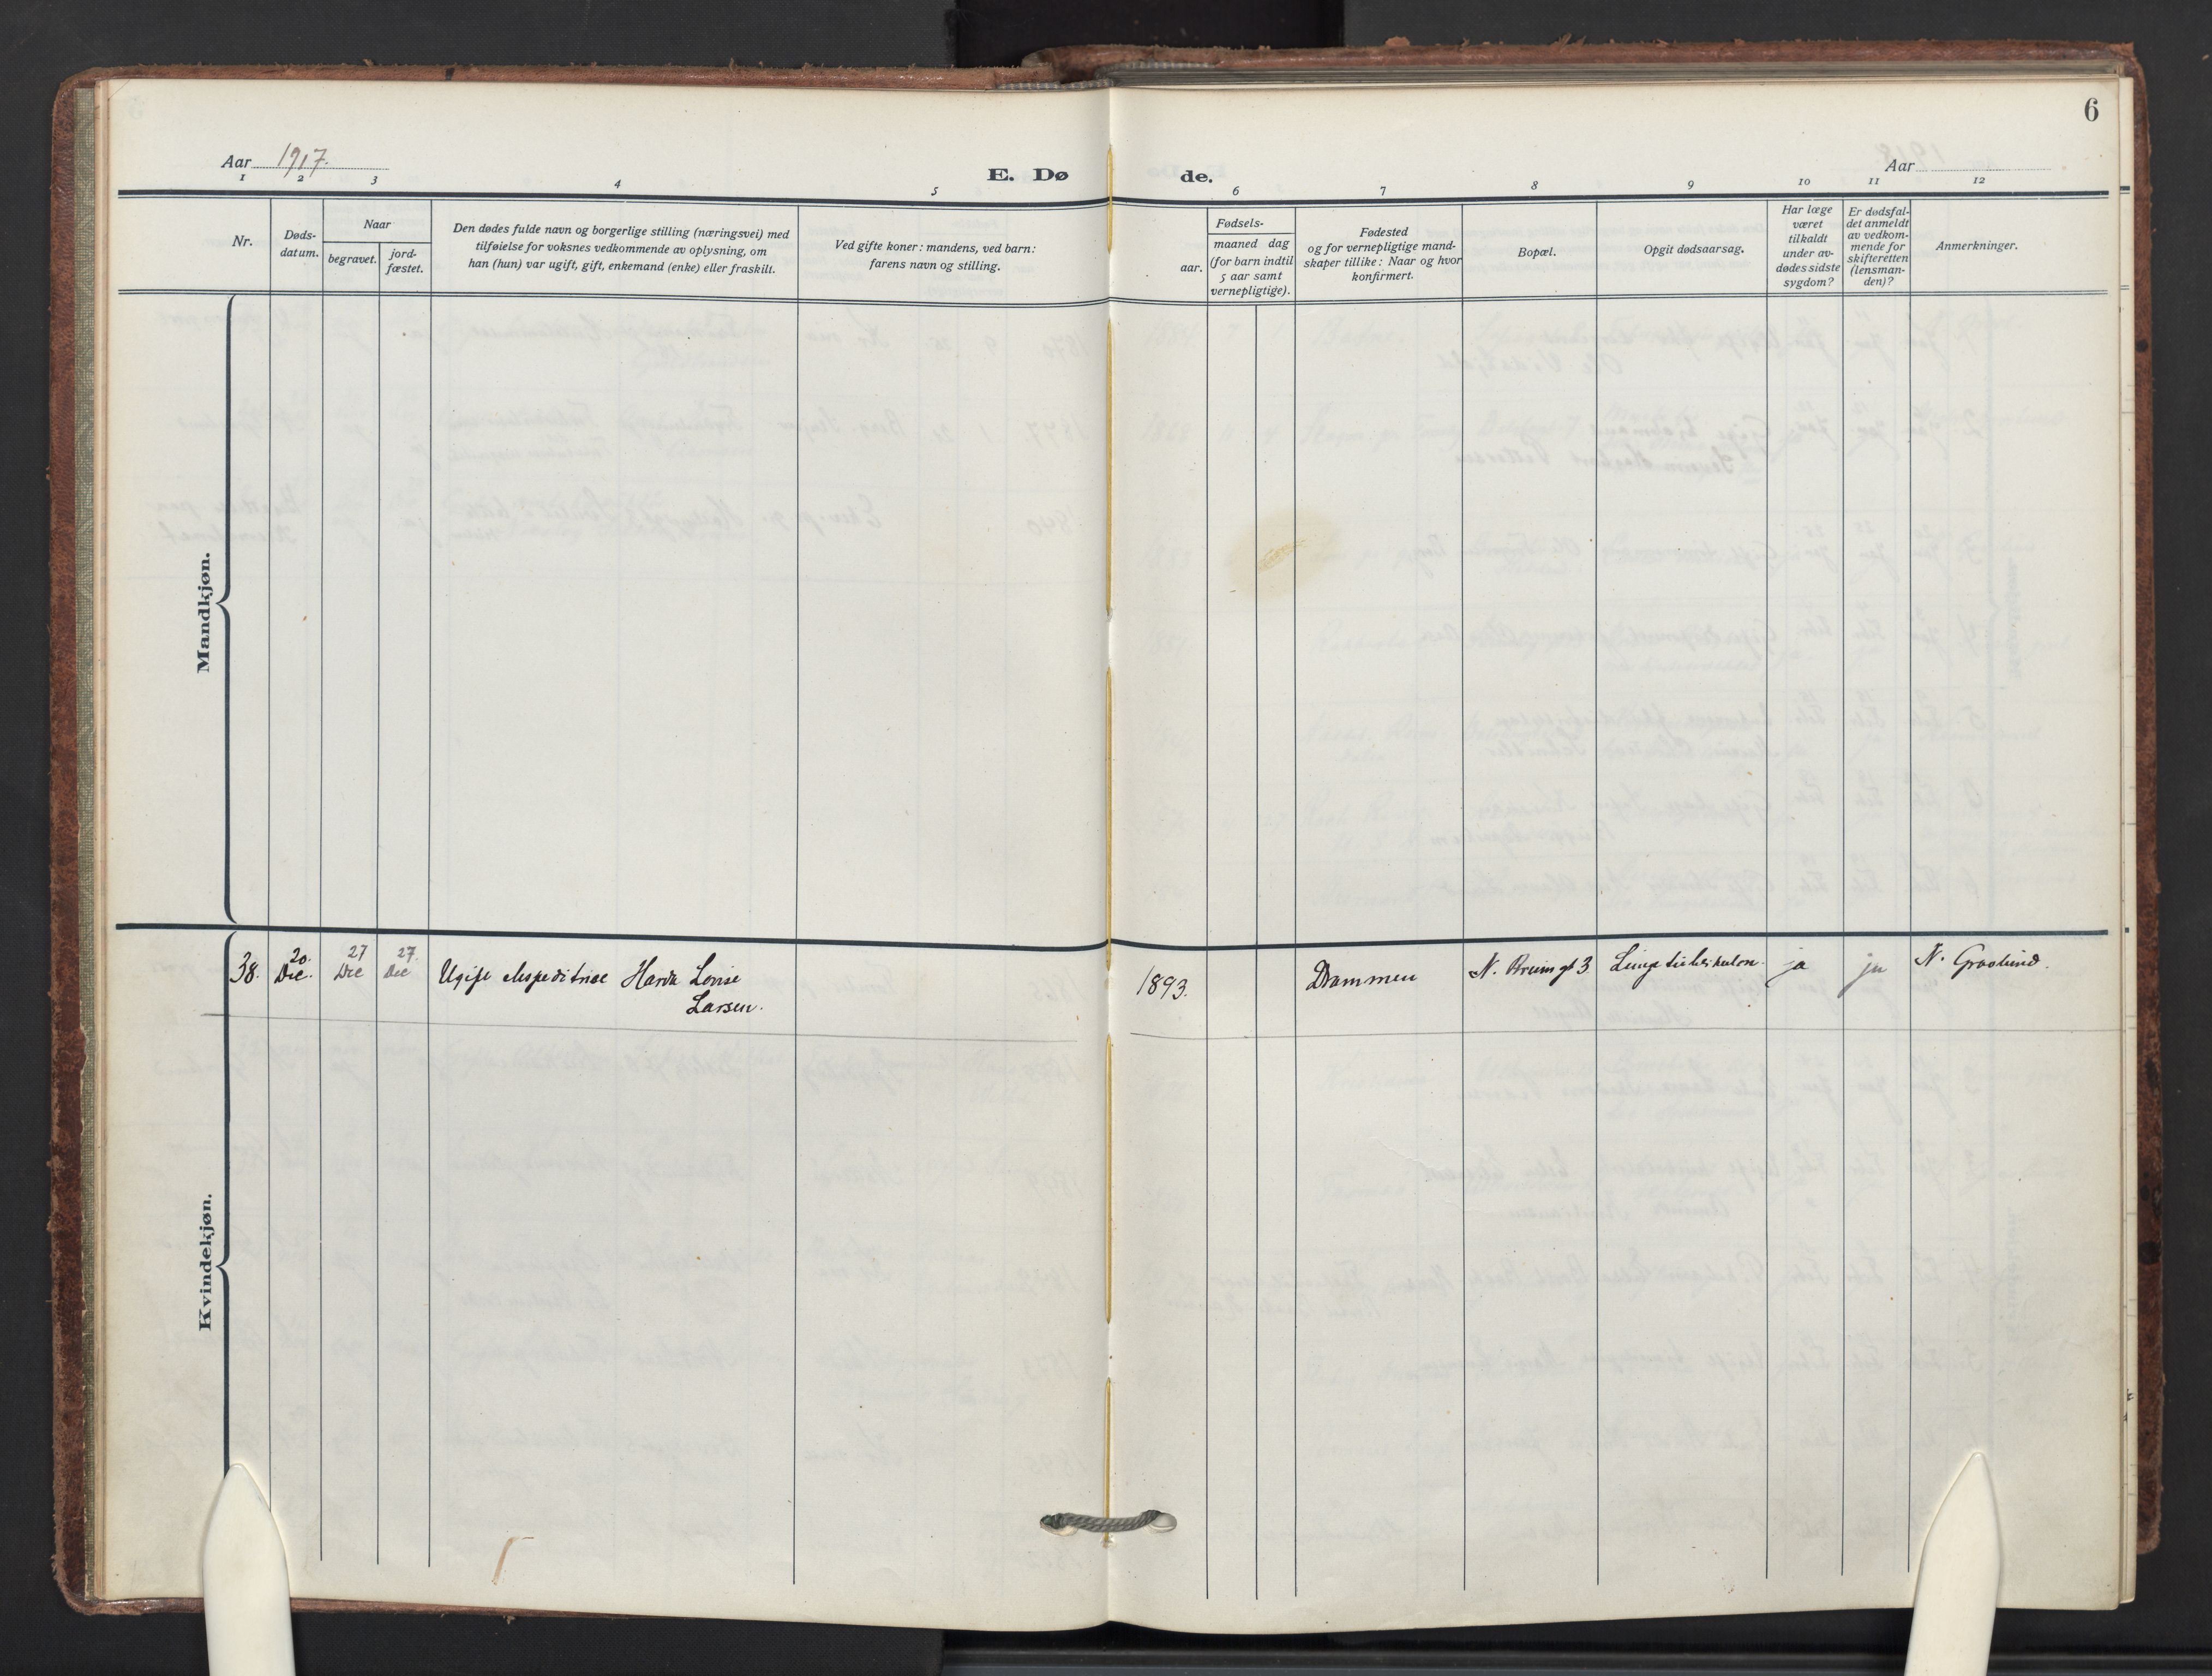 6
Aar 1917.
E. Dø de.
Aar
1 2 3 4 5 6 7 8 9 10 11 12
Nr.
Døds-
datum.
Naar
begravet.
jord-
fæstet.
Den dødes fulde navn og borgerlige stilling (næringsvei) med
tilføielse for voksnes vedkommende av oplysning, om
han (hun) var ugift, gift, enkemand (enke) eller fraskilt.
Ved gifte koner: mandens, ved barn:
farens navn og stilling.
Fødsels-
aar.
maaned dag
(for barn indtil
5 aar samt
vernepligtige).
Fødested
og for vernepligtige mand-
skaper tillike: Naar og hvor
konfirmert.
Bopæl.
Opgit dødsaarsag.
Har læge
været
tilkaldt
under av-
dødes sidste
sygdom?
Er dødsfal-
det anmeldt
av vedkom-
mende for
skifteretten
(lensman-
den)?
Anmerkninger.
Mandkjøn.
Kvindekjøn.
38. 20. Dec. 27 Dec 27. Dec Ugift ekspeditrice Louise
Larsen.
1893. Drammen N. 3 ja ja N. Gravlund.